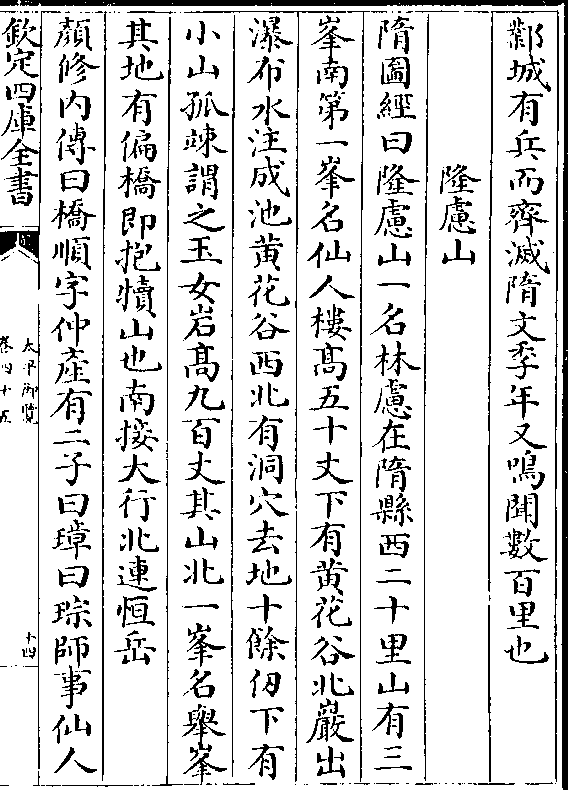 鄴城有兵而齊滅隋文季年又鳴聞數百里也
隆慮山
隋圖經曰隆慮山一名林慮在隋縣西二十里山有三
峯南第一峯名仙人樓髙五十丈下有黄花谷北巖出
瀑布水注成池黄花谷西北有洞穴去地十餘仭下有
小山孤竦謂之玉女岩髙九百丈其山北一峯名舉峯
其地有偏橋即抱犢山也南接大行北連恒岳
顔修内傳曰橋順字仲產有二子曰璋曰琮師事仙人
欽定四庫全書
太平御覧
卷四十五
十四